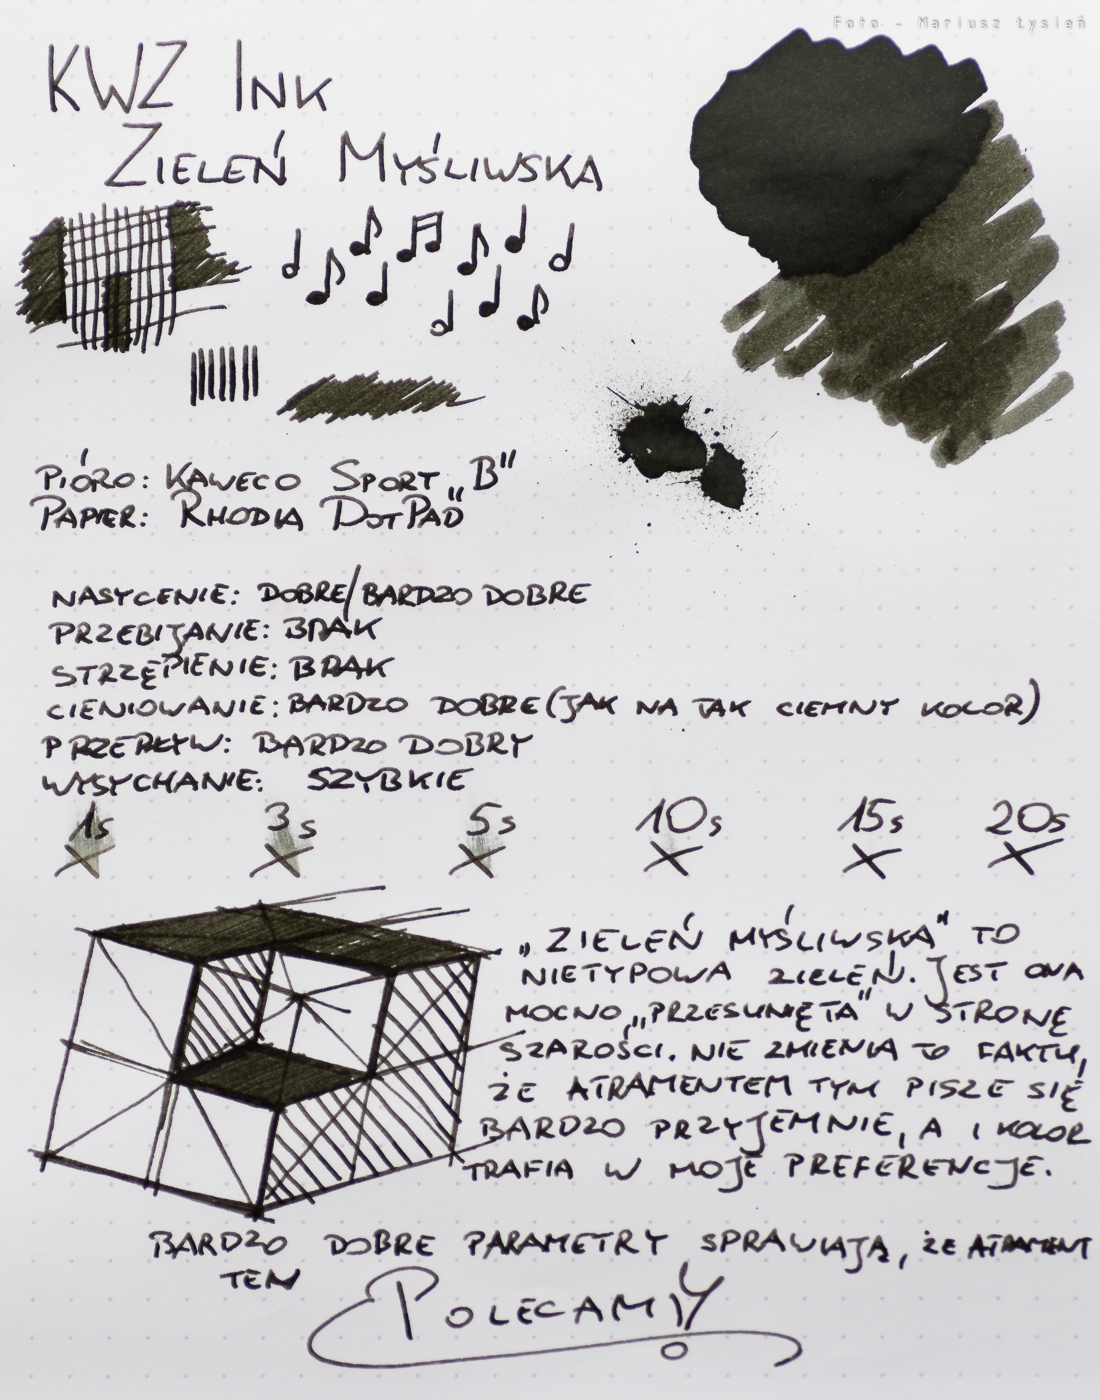 Foto - Mariusz Łysień
KWZ Ink
Zieleń Myśliwska
Pióro: Kaweco Sport „B"
Papier: Rhodia DotPad"
Nasycenie: dobre/bardzo dobre
Przebijanie: brak
Strzępienie: brak
Cieniowanie: bardzo dobre (jak na tak ciemny kolor)
Przepływ: bardzo dobry
Wysychanie: szybkie
1s 3s 5s 10s 15s 20s
„Zieleń Myśliwska" to
nietypowa zieleń. Jest ona
mocno „przesunięta" w stronę
szarości. Nie zmienia to faktu,
że atramentem tym pisze się
bardzo przyjemnie, a i kolor
trafia w moje preferencje.
Bardzo dobre parametry sprawiają, że atrament
ten
Polecamy